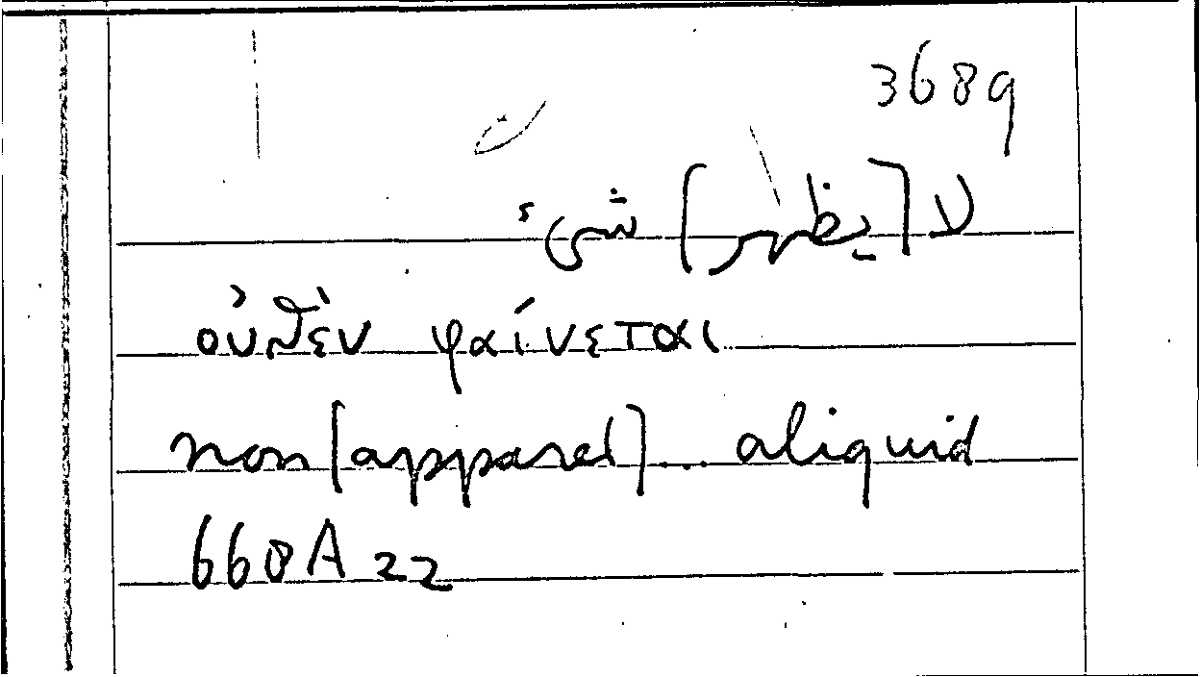 3689
لا [يظهر] شىء
οὐθὲν φαίνεται
non [apparet] ... aliquid
668A22